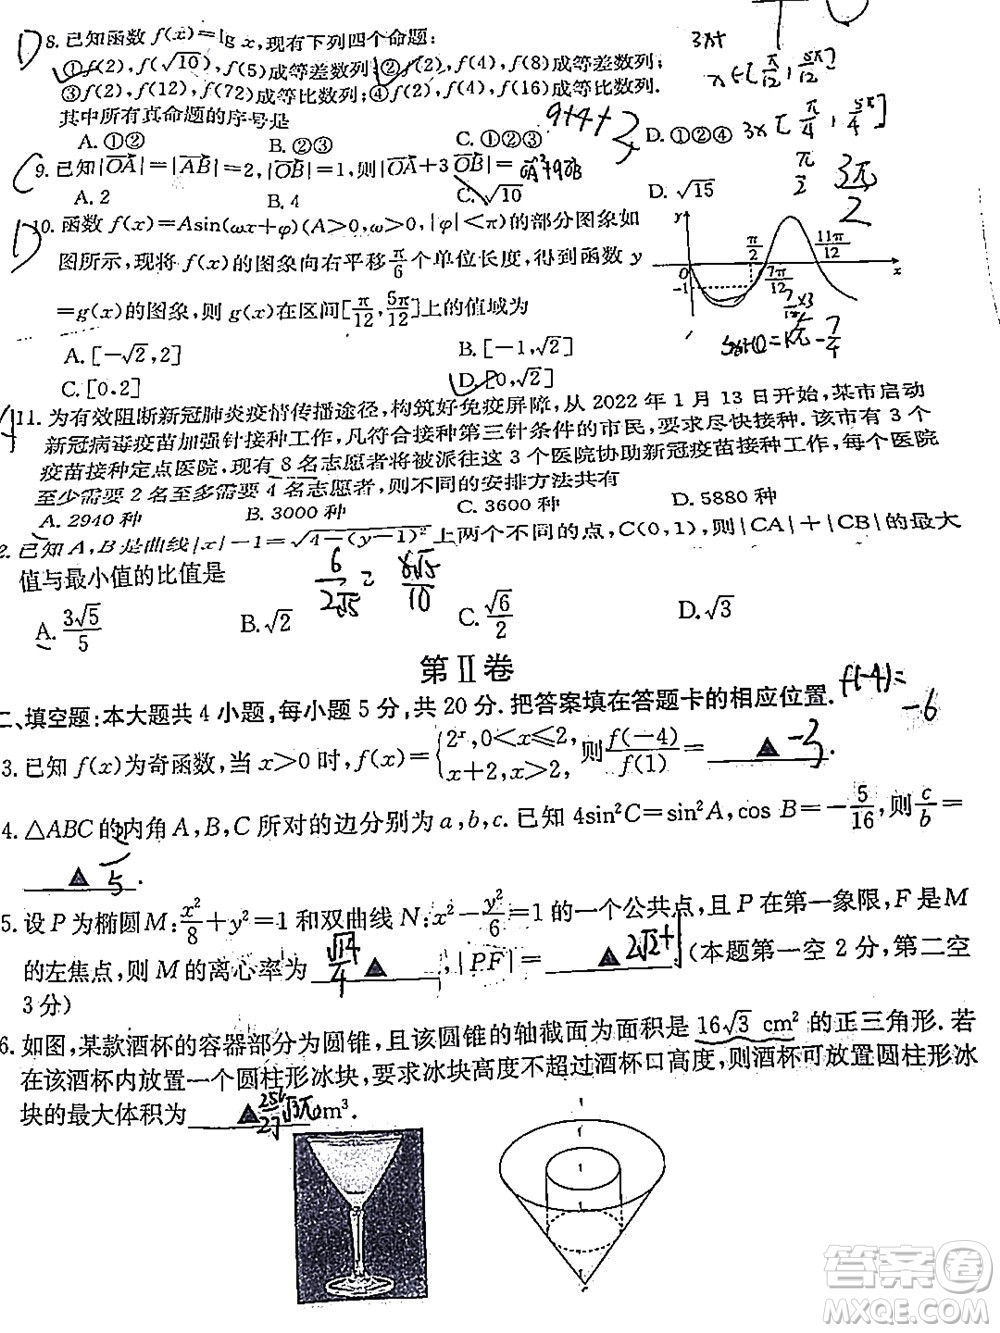 8. 已知函数 f(x)=lg x,现有下列四个命题:
①f(2),f(√10),f(5)成等差数列;②f(2),f(4),f(8)成等差数列;
③f(2),f(12),f(72)成等比数列;④f(2),f(4),f(16)成等比数列.
其中所有真命题的序号是
A. ①② B. ②③ C. ①②③ D. ①②④
9. 已知|OA|=|AB|=2,|OB|=1,则|OA+3OB|=
A. 2 B. 4 C. √10 D. √15
10. 函数 f(x)=Asin(ωx+φ)(A>0,ω>0,|φ|<π)的部分图象如
图所示,现将 f(x)的图象向右平移π/6个单位长度,得到函数 y
=g(x)的图象,则 g(x)在区间[π/12,5π/12]上的值域为
A. [-√2,2] B. [-1,√2]
C. [0,2] D. [0,√2]
y
π/2
11π/12
O
x
-1
7π/12
11. 为有效阻断新冠肺炎疫情传播途径,构筑好免疫屏障,从 2022 年 1 月 13 日开始,某市启动
新冠病毒疫苗加强针接种工作,凡符合接种第三针条件的市民,要求尽快接种.该市有 3 个
疫苗接种定点医院,现有 8 名志愿者将被派往这 3 个医院协助新冠疫苗接种工作,每个医院
至少需要 2 名至多需要 4 名志愿者,则不同的安排方法共有
A. 2940 种 B. 3000 种 C. 3600 种 D. 5880 种
2. 已知 A,B 是曲线|x|-1=√4-(y-1)²上两个不同的点,C(0,1),则|CA|+|CB|的最大
值与最小值的比值是
6/2√5 = 6√5/10
A. 3√5/5 B. √2 C. √6/2 D. √3
第Ⅱ卷
二、填空题:本大题共 4 小题,每小题 5 分,共 20 分.把答案填在答题卡的相应位置.
f(-4)=
-6
3. 已知 f(x)为奇函数,当 x>0 时,f(x)={2ˣ,0<x≤2, x+2,x>2, 则f(-4)/f(1)= ▲ -3
4. △ABC 的内角 A,B,C 所对的边分别为 a,b,c. 已知 4sin²C=sin²A,cos B=-5/16,则c/b=
▲ .
5. 设 P 为椭圆 M:x²/8+y²=1 和双曲线 N:x²-y²/6=1 的一个公共点,且 P 在第一象限,F 是 M
的左焦点,则 M 的离心率为 √14/4 ▲ ,|PF|= ▲ 2√2+1 .(本题第一空 2 分,第二空
3 分)
6. 如图,某款酒杯的容器部分为圆锥,且该圆锥的轴截面为面积是 16√3 cm² 的正三角形.若
在该酒杯内放置一个圆柱形冰块,要求冰块高度不超过酒杯口高度,则酒杯可放置圆柱形冰
块的最大体积为 ▲ 256/27√3π cm³.
答案圈
MXQE.COM